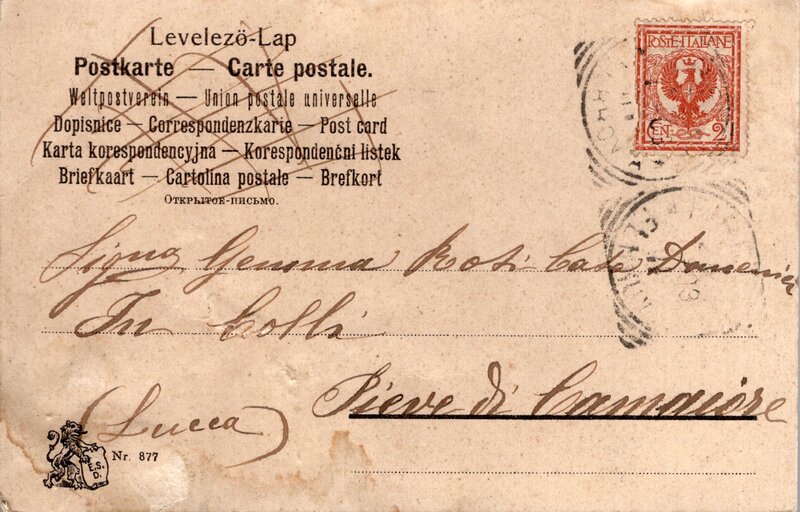 Levelező-Lap
Postkarte — Carte postale.
Weltpostverein — Union postale universelle
Dopisnice — Correspondenzkarte — Post card
Karta korespondencyjna — Korespondenční listek
Briefkaart — Cartolina postale — Brefkort
Открытое-письмо.
POSTE·ITALIANE
CEN. 2
Sigña Gemma Roti Casa Domenici
In Colli
Pieve di Camaiore
(Lucca)
E.S.
D.
Nr. 877